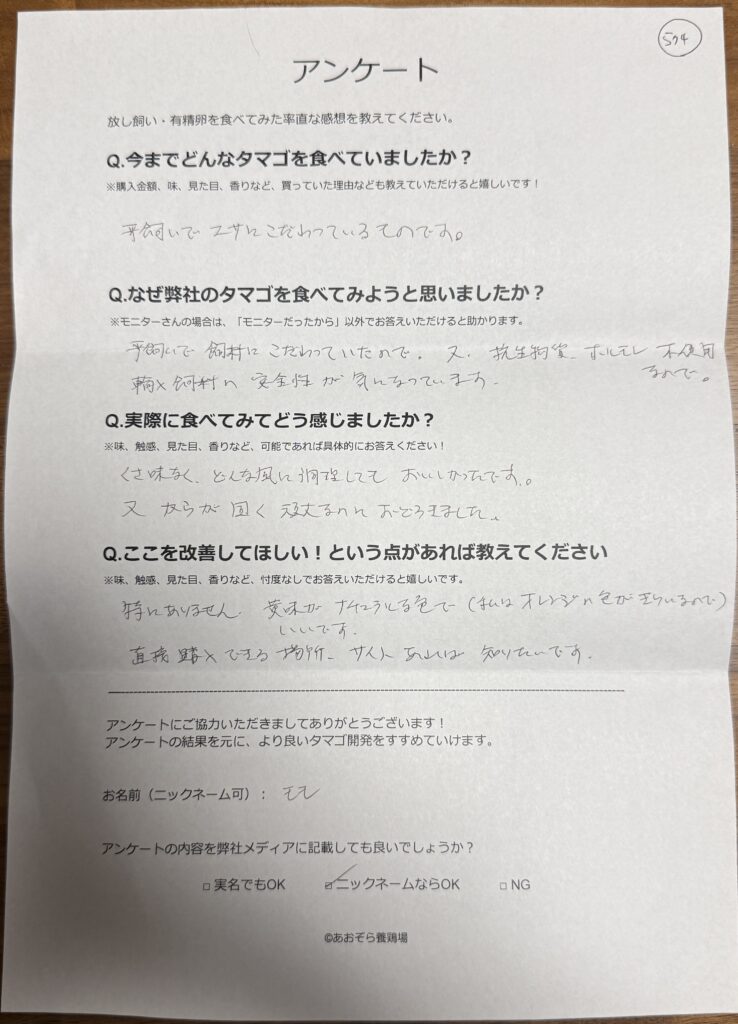 574
アンケート
放し飼い・有精卵を食べてみた率直な感想を教えてください。
Q.今までどんなタマゴを食べていましたか？
※購入金額、味、見た目、香りなど、買っていた理由なども教えていただけると嬉しいです！
平飼いで エサにこだわっているものです。
Q.なぜ弊社のタマゴを食べてみようと思いましたか？
※モニターさんの場合は、「モニターだったから」以外でお答えいただけると助かります。
平飼いで 飼料に こだわっていたので。又、抗生物質、ホルモン 不使用
なので。
輸入飼料の 安全性 が 気になっています。
Q.実際に食べてみてどう感じましたか？
※味、触感、見た目、香りなど、可能であれば具体的にお答えください！
くさ味なく、どんな風に調理しても おいしかったです。
又 からが 固く 頑丈なのに おどろきました。
Q.ここを改善してほしい！という点があれば教えてください
※味、触感、見た目、香りなど、忖度なしでお答えいただけると嬉しいです。
特にありません。黄味が ナチュラルな色で (私は オレンジの色が きらいなので)
いいです。
直接 購入 できる 場所、サイト あれば 知りたいです。
アンケートにご協力いただきましてありがとうございます！
アンケートの結果を元に、より良いタマゴ開発をすすめていけます。
お名前（ニックネーム可）： モモ
アンケートの内容を弊社メディアに記載しても良いでしょうか？
□ 実名でもOK ☑ ニックネームならOK □ NG
©あおぞら養鶏場